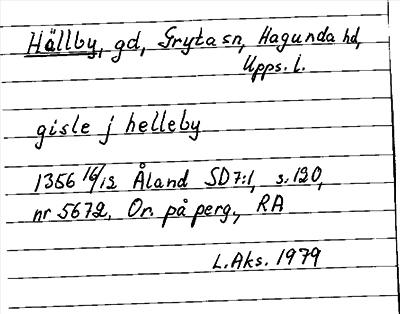 Hällby, gd, Gryta sn, Hagunda hd,
Upps. l.
gisle j helleby
1356 16/12 Åland SD7:1, s. 120,
nr 5672, Or. på perg., RA
L. Aks. 1979